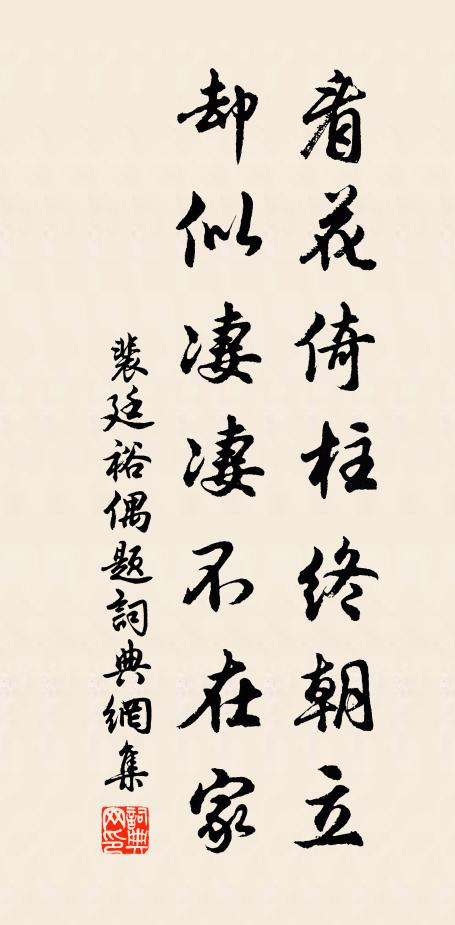 看花倚柱終朝立
却似凄凄不在家
裴廷裕偶題詞典網集
詞典网印